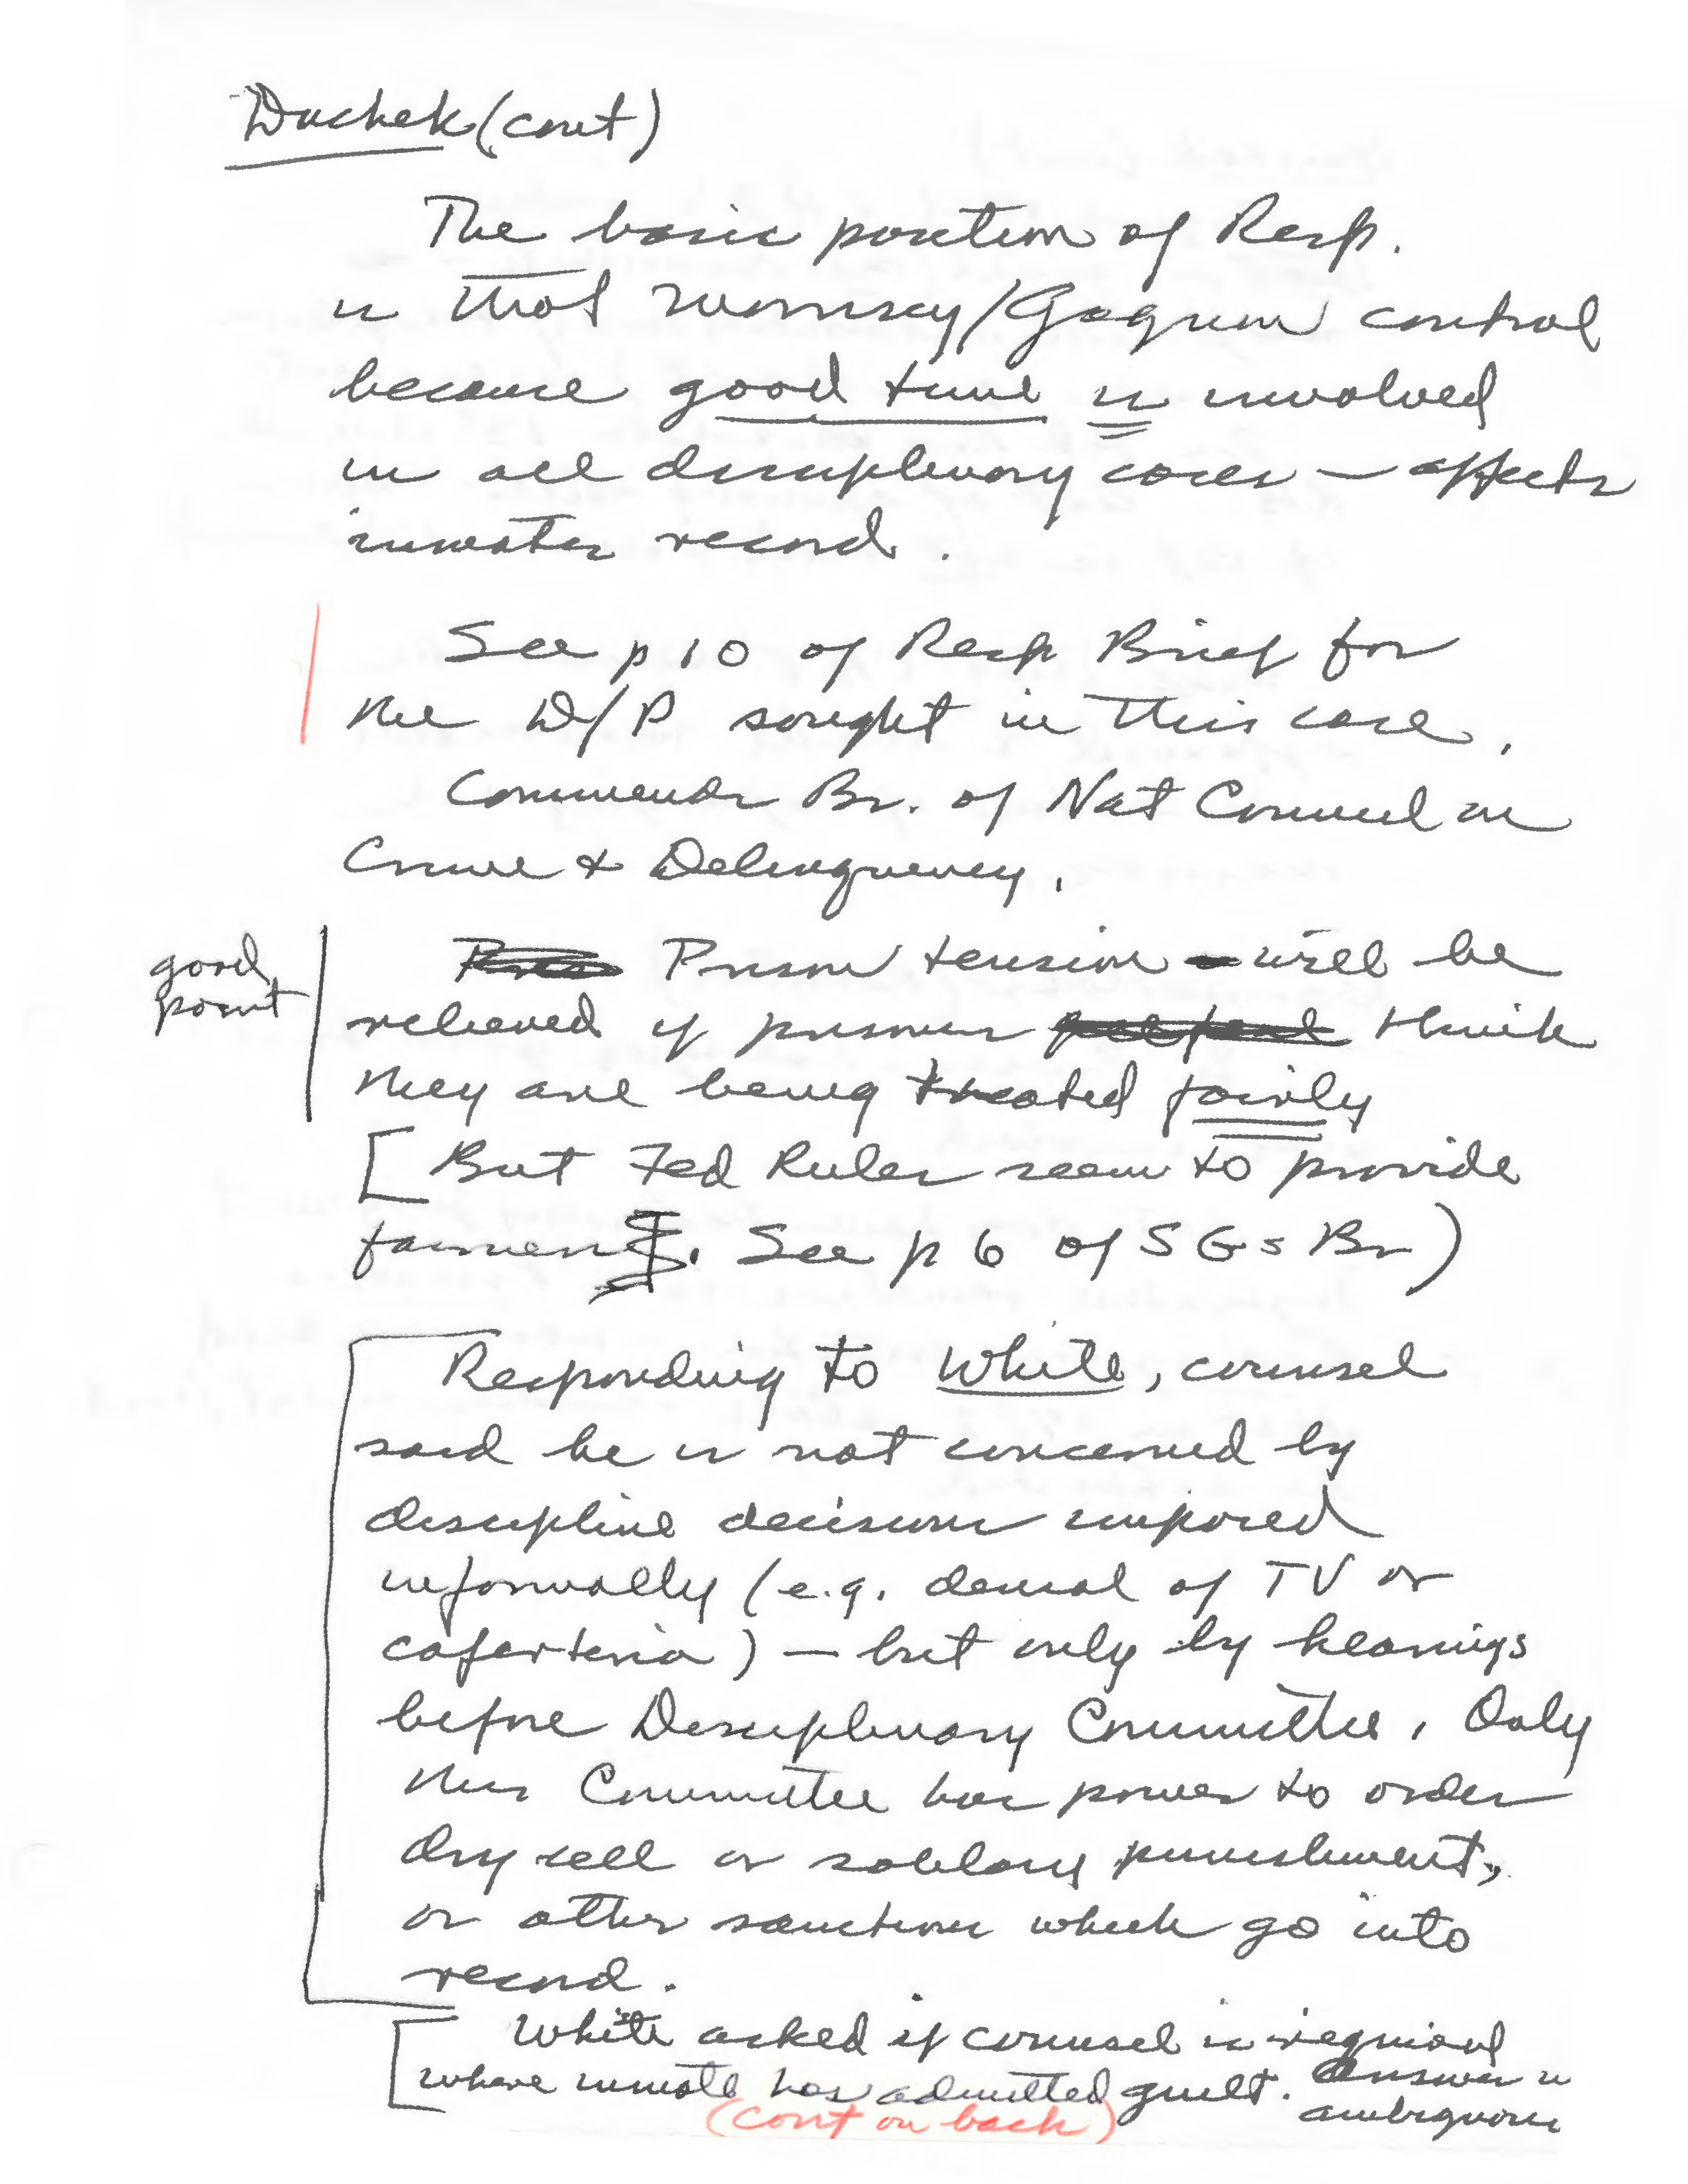 Duchek (cont)
The basic position of Resp.
is that Morrissey/Gagnon control
because good time is involved
in all disciplinary cases – affects
inmates record.
See p 10 of Resp Brief for
the D/P sought in this case.
Commends Br. of Nat Council on
Crime & Delinquency.
good
point
Prison tension – will be
relieved if prisoners think
they are being treated fairly
[But Fed Rules seem to provide
fairness. See p 6 of SGs Br)
Responding to White, counsel
said he is not concerned by
discipline decisions imposed
informally (e.g. denial of TV or
caferteria) – but only by hearings
before Disciplinary Committee. Only
this Committee has power to order
dry cell or solitary punishment,
or other sanctions which go into
record.
[White asked if counsel is required
where inmate has admitted guilt. Answer is
ambiguous
(cont on back)